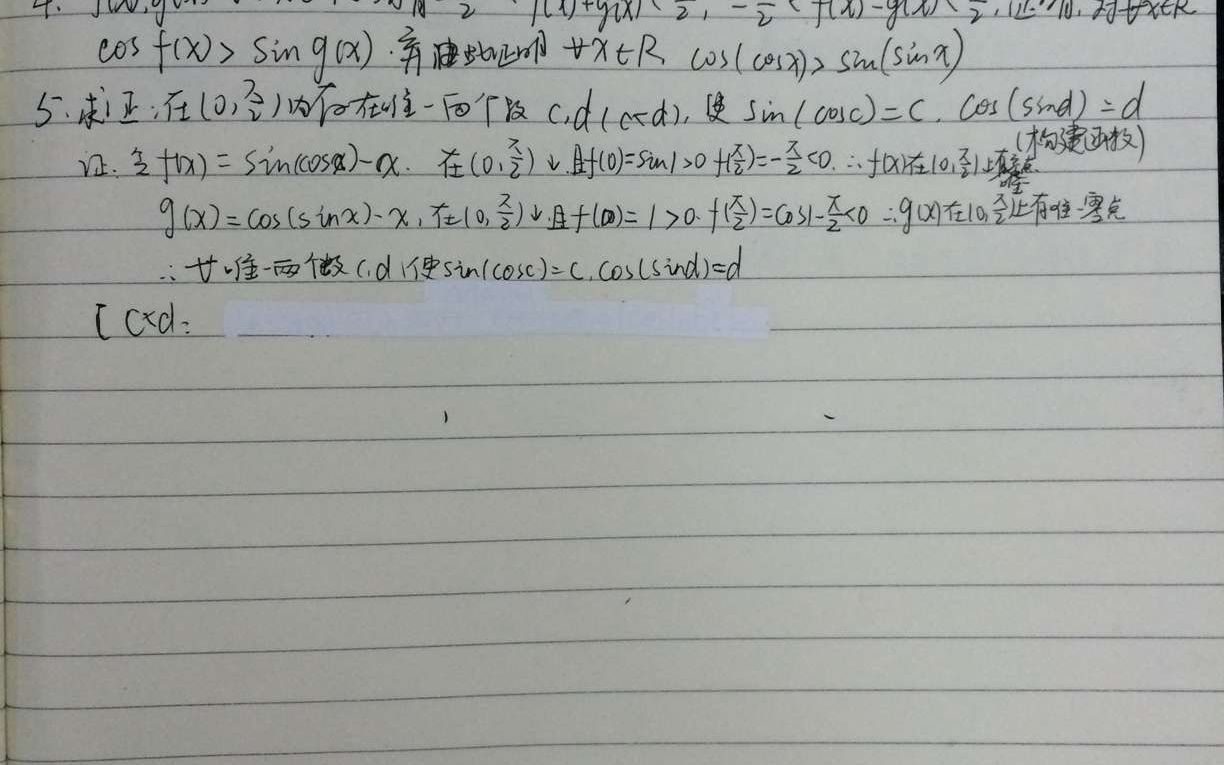 4. f(x), g(x) 有 -π/2 < f(x)+g(x) < π/2, -π/2 < f(x)-g(x) < π/2, 证明, 对∀x∈R
cos f(x) > sin g(x). 并由此证明 ∀x∈R, cos(cosx) > sin(sinx)
5. 求证: 在(0, π/2)内存在唯一两个数 c,d (c<d), 使 sin(cosc)=c. cos(sind)=d
(构建函数)
证: 令 f(x) = sin(cosx)-x. 在(0, π/2)↓且f(0)=sin1>0 f(π/2)=-π/2<0. ∴f(x)在(0,π/2)上有唯一零点
g(x)=cos(sinx)-x, 在(0,π/2)↓且f(0)=1>0. f(π/2)=cos1-π/2<0 ∴g(x)在(0,π/2)上有唯一零点
∴ 唯一两个数 c,d 使sin(cosc)=c, cos(sind)=d
[ c<d: